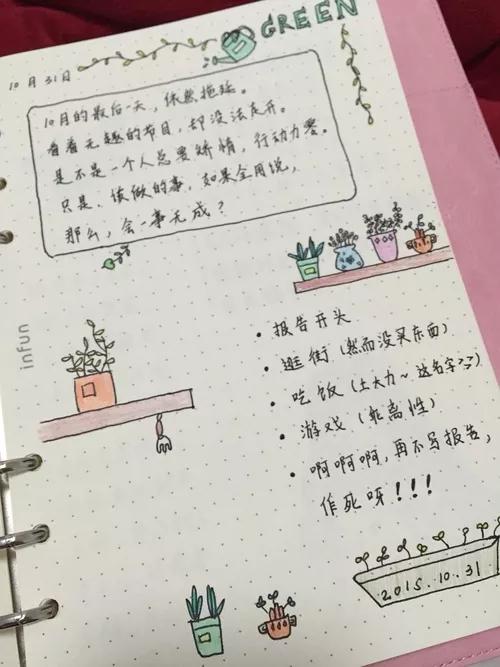 GREEN
10月31日
10月的最后一天，依然拖延。
看着无趣的节目，却没法走开。
是不是一个人总要矫情，行动力零。
只是，该做的事，如果全用说，
那么，会一事无成？
infun
报告开头
逛街（然而没买东西）
吃饭（土大力~这名字
游戏（距离性）
啊啊啊，再不写报告，
作死呀！！！
2015.10.31